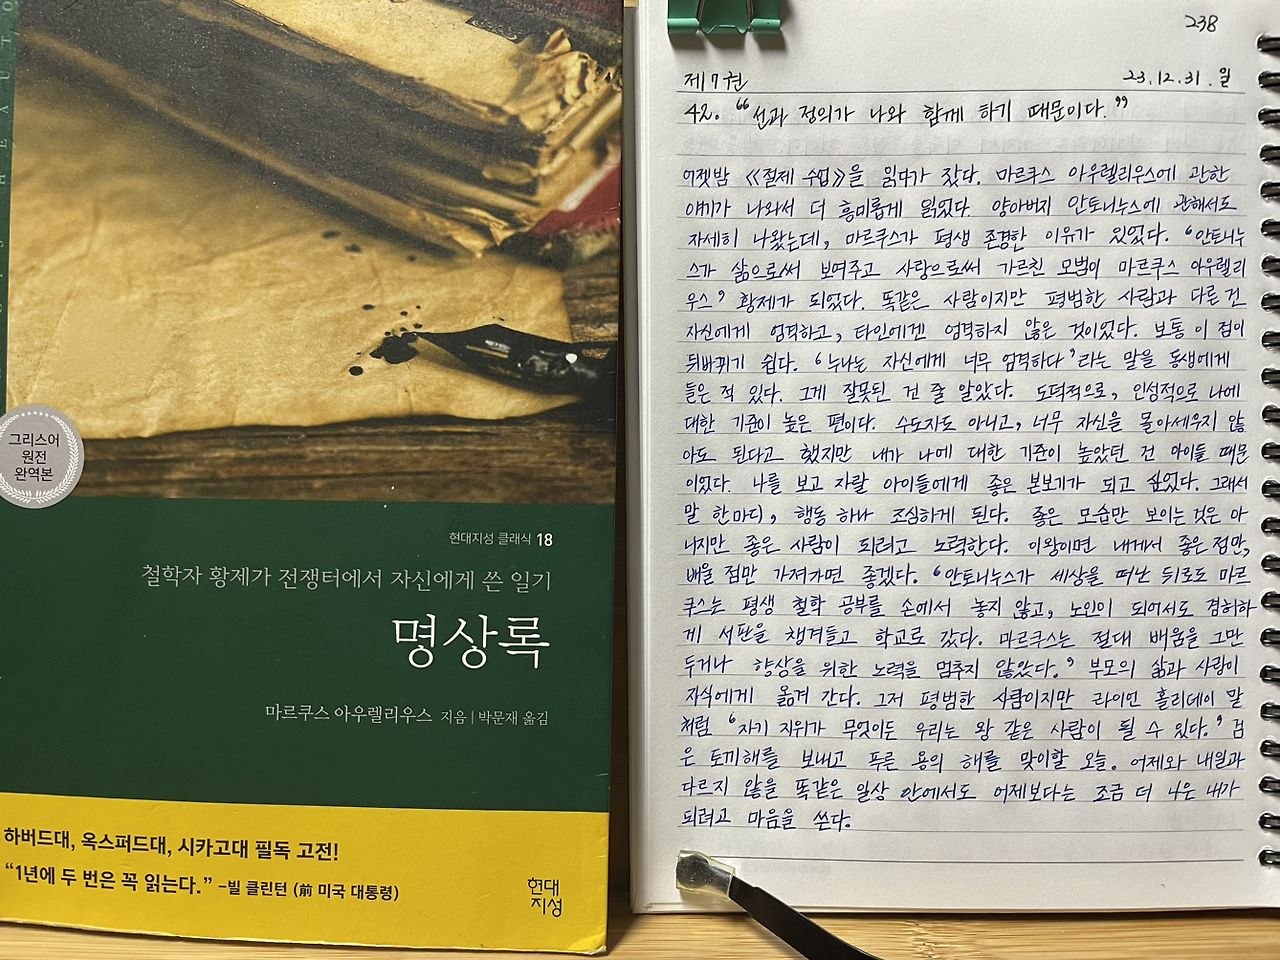 그리스어
원전
완역본
현대지성 클래식 18
철학자 황제가 전쟁터에서 자신에게 쓴 일기
명상록
마르쿠스 아우렐리우스 지음 | 박문재 옮김
하버드대, 옥스퍼드대, 시카고대 필독 고전!
“1년에 두 번은 꼭 읽는다.” –빌 클린턴 (前 미국 대통령)
현대
지성
238
제7권
23.12.31.일
42. “선과 정의가 나와 함께 하기 때문이다.”
어젯밤 《절제 수업》을 읽다가 잤다. 마르쿠스 아우렐리우스에 관한
얘기가 나와서 더 흥미롭게 읽었다. 양아버지 안토니누스에 관해서도
자세히 나왔는데, 마르쿠스가 평생 존경한 이유가 있었다. “안토니누
스가 삶으로써 보여주고 사랑으로써 가르친 모범이 마르쿠스 아우렐리
우스” 황제가 되었다. 똑같은 사람이지만 평범한 사람과 다른 건
자신에게 엄격하고, 타인에겐 엄격하지 않은 것이었다. 보통 이 점이
뒤바뀌기 쉽다. ‘누나는 자신에게 너무 엄격하다’라는 말을 동생에게
들은 적 있다. 그게 잘못된 건 줄 알았다. 도덕적으로, 인성적으로 나에
대한 기준이 높은 편이다. 수도자도 아니고, 너무 자신을 몰아세우지 않
아도 된다고 했지만 내가 나에 대한 기준이 높았던 건 아이들 때문
이었다. 나를 보고 자랄 아이들에게 좋은 본보기가 되고 싶었다. 그래서
말 한마디, 행동 하나 조심하게 된다. 좋은 모습만 보이는 것은 아
니지만 좋은 사람이 되려고 노력한다. 이왕이면 내게서 좋은 점만,
배울 점만 가져가면 좋겠다. “안토니누스가 세상을 떠난 뒤로도 마르
쿠스는 평생 철학 공부를 손에서 놓지 않고, 노인이 되어서도 겸허하
게 서판을 챙겨들고 학교로 갔다. 마르쿠스는 절대 배움을 그만
두거나 향상을 위한 노력을 멈추지 않았다.” 부모의 삶과 사랑이
자식에게 옮겨 간다. 그저 평범한 사람이지만 라이언 홀리데이 말
처럼 “자기 지위가 무엇이든 우리는 왕 같은 사람이 될 수 있다.” 검
은 토끼해를 보내고 푸른 용의 해를 맞이할 오늘. 어제와 내일과
다르지 않을 똑같은 일상 안에서도 어제보다는 조금 더 나은 내가
되려고 마음을 쓴다.